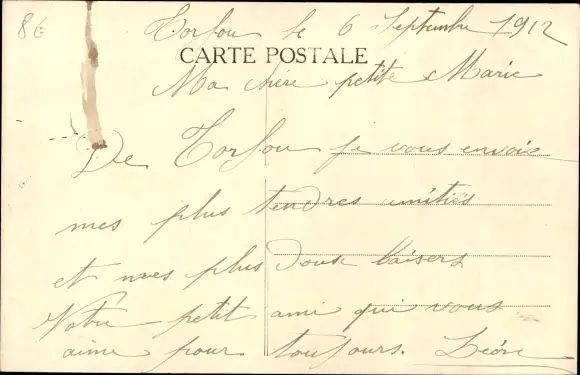 86
Torfou le 6 Septembre 1912
CARTE POSTALE
Ma chère petite Marie
De Torfou je vous envoie
mes plus tendres amitiés
et mes plus doux baisers
Votre petit ami qui vous
aime pour toujours. Léon